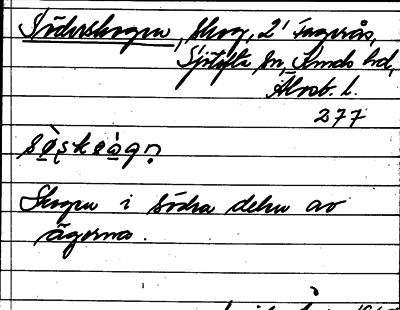 Söderskogen, skog, 2¹ Fagerås,
Sjötofta sn, Kinds hd,
Älvsb. l.
277
Skogen i södra delen av
ägorna.